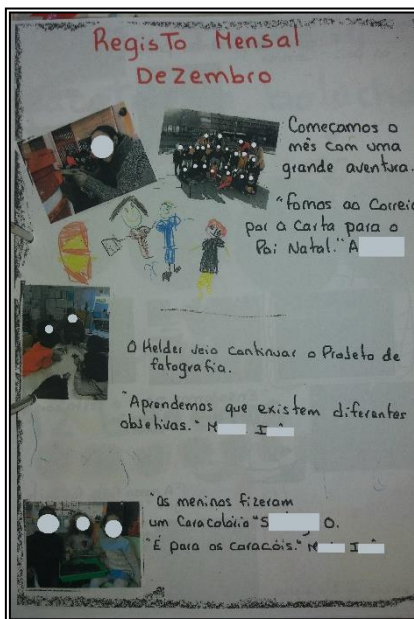 Registo Mensal
Dezembro
Começamos o
mês com uma
grande aventura.
"fomos ao Correio
por a Carta para o
Pai Natal." A
O Helder veio continuar o Projeto de
fotografia.
"Aprendemos que existem diferentes
objetivas." M I
"os meninos fizeram
um Caracolário" S O.
"É para os caracóis." M I